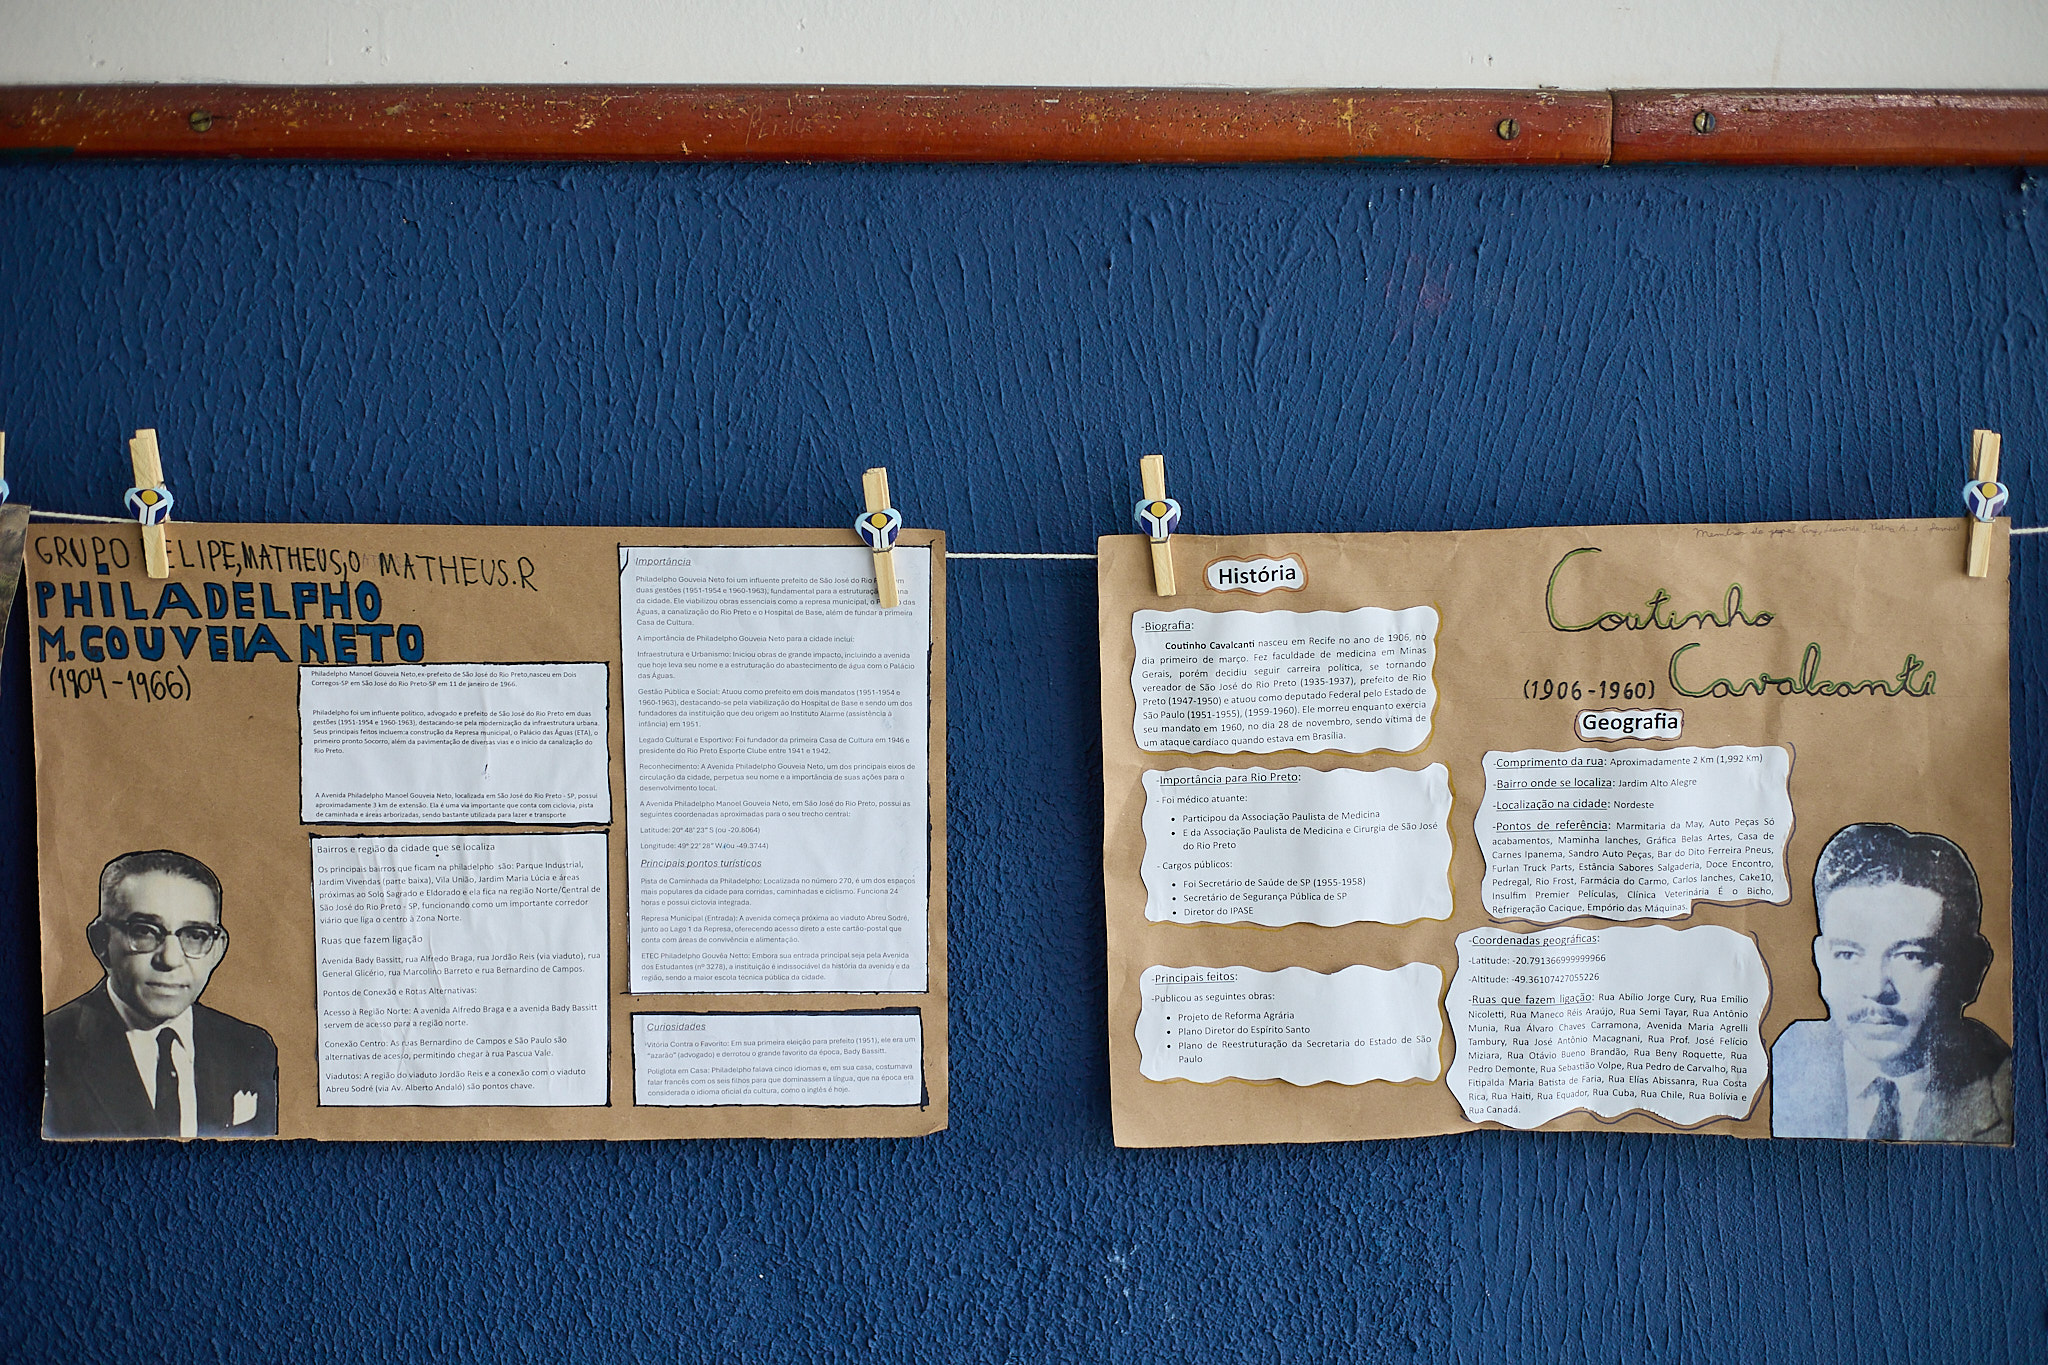 GRUPO FELIPE, MATHEUS,O MATHEUS.R
PHILADELPHO
M.GOUVEIA NETO
(1904-1966)
Philadelpho Manoel Gouveia Neto,ex-prefeito de São José do Rio Preto,nasceu em Dois
Corregos-SP em São José do Rio Preto-SP em 11 de janeiro de 1966.
Philadelpho foi um influente político, advogado e prefeito de São José do Rio Preto em duas
gestões (1951-1954 e 1960-1963), destacando-se pela modernização da infraestrutura urbana.
Seus principais feitos incluem:a construção da Represa municipal, o Palácio das Águas (ETA), o
primeiro pronto Socorro, além da pavimentação de diversas vias e o início da canalização do
Rio Preto.
A Avenida Philadelpho Manoel Gouveia Neto, localizada em São José do Rio Preto - SP, possui
aproximadamente 3 km de extensão. Ela é uma via importante que conta com ciclovia, pista
de caminhada e áreas arborizadas, sendo bastante utilizada para lazer e transporte
Bairros e região da cidade que se localiza
Os principais bairros que ficam na philadelpho são: Parque Industrial,
Jardim Vivendas (parte baixa), Vila União, Jardim Maria Lúcia e áreas
próximas ao Solo Sagrado e Eldorado e ela fica na região Norte/Central de
São José do Rio Preto - SP, funcionando como um importante corredor
viário que liga o centro à Zona Norte.
Ruas que fazem ligação
Avenida Bady Bassitt, rua Alfredo Braga, rua Jordão Reis (via viaduto), rua
General Glicério, rua Marcolino Barreto e rua Bernardino de Campos.
Pontos de Conexão e Rotas Alternativas:
Acesso à Região Norte: A avenida Alfredo Braga e a avenida Bady Bassitt
servem de acesso para a região norte.
Conexão Centro: As ruas Bernardino de Campos e São Paulo são
alternativas de acesso, permitindo chegar à rua Pascua Vale.
Viadutos: A região do viaduto Jordão Reis e a conexão com o viaduto
Abreu Sodré (via Av. Alberto Andaló) são pontos chave.
Importância
Philadelpho Gouveia Neto foi um influente prefeito de São José do Rio em
duas gestões (1951-1954 e 1960-1963), fundamental para a estruturação
da cidade. Ele viabilizou obras essenciais como a represa municipal, o das
Águas, a canalização do Rio Preto e o Hospital de Base, além de fundar a primeira
Casa de Cultura.
A importância de Philadelpho Gouveia Neto para a cidade inclui:
Infraestrutura e Urbanismo: Iniciou obras de grande impacto, incluindo a avenida
que hoje leva seu nome e a estruturação do abastecimento de água com o Palácio
das Águas.
Gestão Pública e Social: Atuou como prefeito em dois mandatos (1951-1954 e
1960-1963), destacando-se pela viabilização do Hospital de Base e sendo um dos
fundadores da instituição que deu origem ao Instituto Alarme (assistência à
infância) em 1951.
Legado Cultural e Esportivo: Foi fundador da primeira Casa de Cultura em 1946 e
presidente do Rio Preto Esporte Clube entre 1941 e 1942.
Reconhecimento: A Avenida Philadelpho Gouveia Neto, um dos principais eixos de
circulação da cidade, perpetua seu nome e a importância de suas ações para o
desenvolvimento local.
A Avenida Philadelpho Manoel Gouveia Neto, em São José do Rio Preto, possui as
seguintes coordenadas aproximadas para o seu trecho central:
Latitude: 20° 48' 23" S (ou -20.8064)
Longitude: 49° 22' 28" W (ou -49.3744)
Principais pontos turísticos
Pista de Caminhada da Philadelpho: Localizada no número 270, é um dos espaços
mais populares da cidade para corridas, caminhadas e ciclismo. Funciona 24
horas e possui ciclovia integrada.
Represa Municipal (Entrada): A avenida começa próxima ao viaduto Abreu Sodré,
junto ao Lago 1 da Represa, oferecendo acesso direto a este cartão-postal que
conta com áreas de convivência e alimentação.
ETEC Philadelpho Gouvêa Neto: Embora sua entrada principal seja pela Avenida
dos Estudantes (nº 3278), a instituição é indissociável da história da avenida e da
região, sendo a maior escola técnica pública da cidade.
Curiosidades
Vitória Contra o Favorito: Em sua primeira eleição para prefeito (1951), ele era um
"azarão" (advogado) e derrotou o grande favorito da época, Bady Bassitt.
Poliglota em Casa: Philadelpho falava cinco idiomas e, em sua casa, costumava
falar francês com os seis filhos para que dominassem a língua, que na época era
considerada o idioma oficial da cultura, como o inglês é hoje.
História
-Biografia:
Coutinho Cavalcanti nasceu em Recife no ano de 1906, no
dia primeiro de março. Fez faculdade de medicina em Minas
Gerais, porém decidiu seguir carreira política, se tornando
vereador de São José do Rio Preto (1935-1937), prefeito de Rio
Preto (1947-1950) e atuou como deputado Federal pelo Estado de
São Paulo (1951-1955), (1959-1960). Ele morreu enquanto exercia
seu mandato em 1960, no dia 28 de novembro, sendo vítima de
um ataque cardíaco quando estava em Brasília.
-Importância para Rio Preto:
- Foi médico atuante:
• Participou da Associação Paulista de Medicina
• E da Associação Paulista de Medicina e Cirurgia de São José
do Rio Preto
- Cargos públicos:
• Foi Secretário de Saúde de SP (1955-1958)
• Secretário de Segurança Pública de SP
• Diretor do IPASE
-Principais feitos:
-Publicou as seguintes obras:
• Projeto de Reforma Agrária
• Plano Diretor do Espírito Santo
• Plano de Reestruturação da Secretaria do Estado de São
Paulo
Membros do
Coutinho
Cavalcanti
(1906-1960)
Geografia
-Comprimento da rua: Aproximadamente 2 Km (1,992 Km)
-Bairro onde se localiza: Jardim Alto Alegre
-Localização na cidade: Nordeste
-Pontos de referência: Marmitaria da May, Auto Peças Só
acabamentos, Maminha lanches, Gráfica Belas Artes, Casa de
Carnes Ipanema, Sandro Auto Peças, Bar do Dito Ferreira Pneus,
Furlan Truck Parts, Estância Sabores Salgaderia, Doce Encontro,
Pedregal, Rio Frost, Farmácia do Carmo, Carlos lanches, Cake10,
Insulfim Premier Películas, Clínica Veterinária É o Bicho,
Refrigeração Cacique, Empório das Máquinas.
-Coordenadas geográficas:
-Latitude: -20.791366999999966
-Altitude: -49.36107427055226
-Ruas que fazem ligação: Rua Abílio Jorge Cury, Rua Emílio
Nicoletti, Rua Maneco Réis Araújo, Rua Semi Tayar, Rua Antônio
Munia, Rua Álvaro Chaves Carramona, Avenida Maria Agrelli
Tambury, Rua José Antônio Macagnani, Rua Prof. José Felício
Miziara, Rua Otávio Bueno Brandão, Rua Beny Roquette, Rua
Pedro Demonte, Rua Sebastião Volpe, Rua Pedro de Carvalho, Rua
Fitipalda Maria Batista de Faria, Rua Elías Abissanra, Rua Costa
Rica, Rua Haiti, Rua Equador, Rua Cuba, Rua Chile, Rua Bolívia e
Rua Canadá.